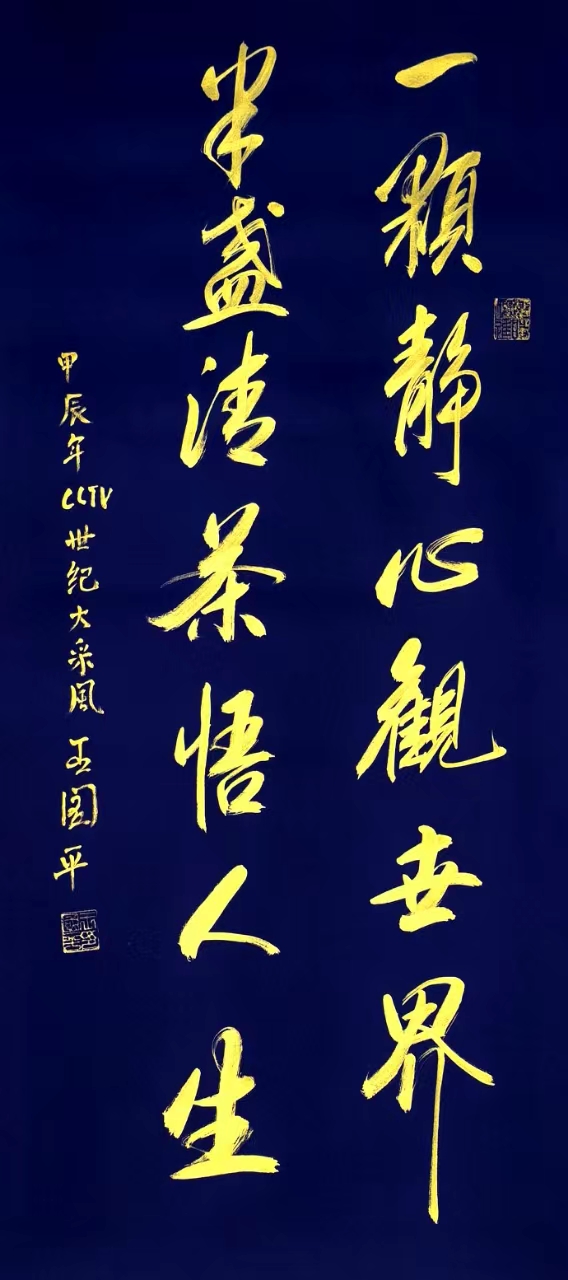 一顆靜心觀世界
半盞清茶悟人生
甲辰年CCTV世纪大采風 王国平